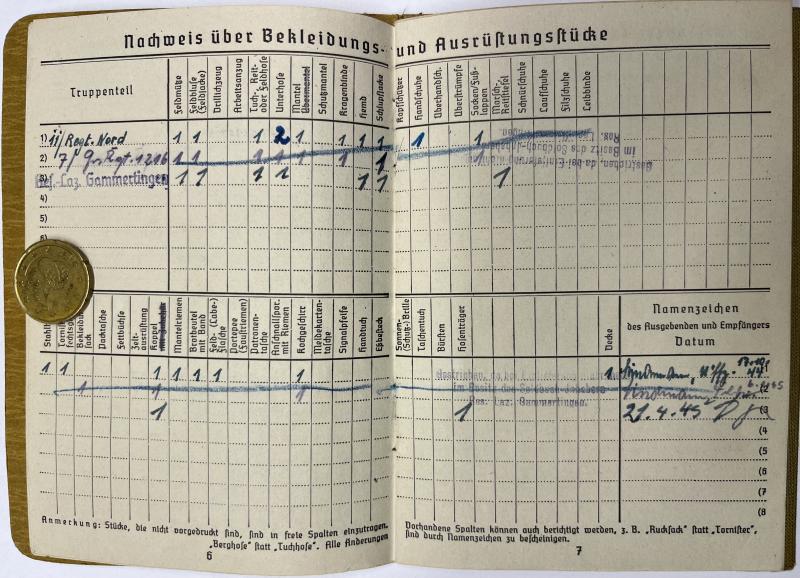 Nachweis über Bekleidungs- und Ausrüstungsstücke
Truppenteil
Feldmütze
Feldbluse (Feldjacke)
Drillichzeug
Arbeitsanzug
Tuch-, Reit- oder Feldhose
Unterhose
Mantel
Übermantel
Schutzmantel
Kragenbinde
Hemd
Schlupfjacke
Kopfschützer
Handschuhe
Überhandsch.
Überstrümpfe
Socken/Fußlappen
Marsch-, Reitstiefel
Schnürschuhe
Laufschuhe
Filzschuhe
Leibbinde
1) II/Regt. Nord 1 1 1 2 1 1 1 1 1 1
2) 7/ Gr. Rgt. 1216 1 1 1 1 1 1 1
3) Res.-Laz. Gammertingen 1 1 1 1 1 1 1
4)
5)
6)
Gestrichen, da bei Einlieferung nicht
im Besitz des Soldbuch-Inhabers
Res. Laz.
Stahlh
Tornist
Bekleid sack
Packtasche
Zeltbüchse
Zeltausrüstung
Koppel
Mantelriemen
Brotbeutel mit Band
Feld- (Labe-) flasche
Portepee (Faustriemen)
Patronentasche
Anschnallspor. mit Riemen
Kochgeschirr
Meldekartentasche
Signalpfeife
Handtuch
Eßbesteck
Sonnen- (Schutz-) Brille
Taschentuch
Bürsten
Hosenträger
Decke
Namenzeichen
des Ausgebenden und Empfängers
Datum
1 1 1 1 1 1 1 1 1 1
1 1 1
1 1 21.4.45
Gestrichen, da bei
im Besitz des Soldbuch-Inhabers
Res. Laz. Gammertingen.
(3
(4
(5
(6
(7
(8
Anmerkung: Stücke, die nicht vorgedruckt sind, sind in freie Spalten einzutragen.
„Berghose“ statt „Tuchhose“. Alle Änderungen
6
Vorhandene Spalten können auch berichtigt werden, z. B. „Rucksack“ statt „Tornister“,
sind durch Namenzeichen zu bescheinigen.
7